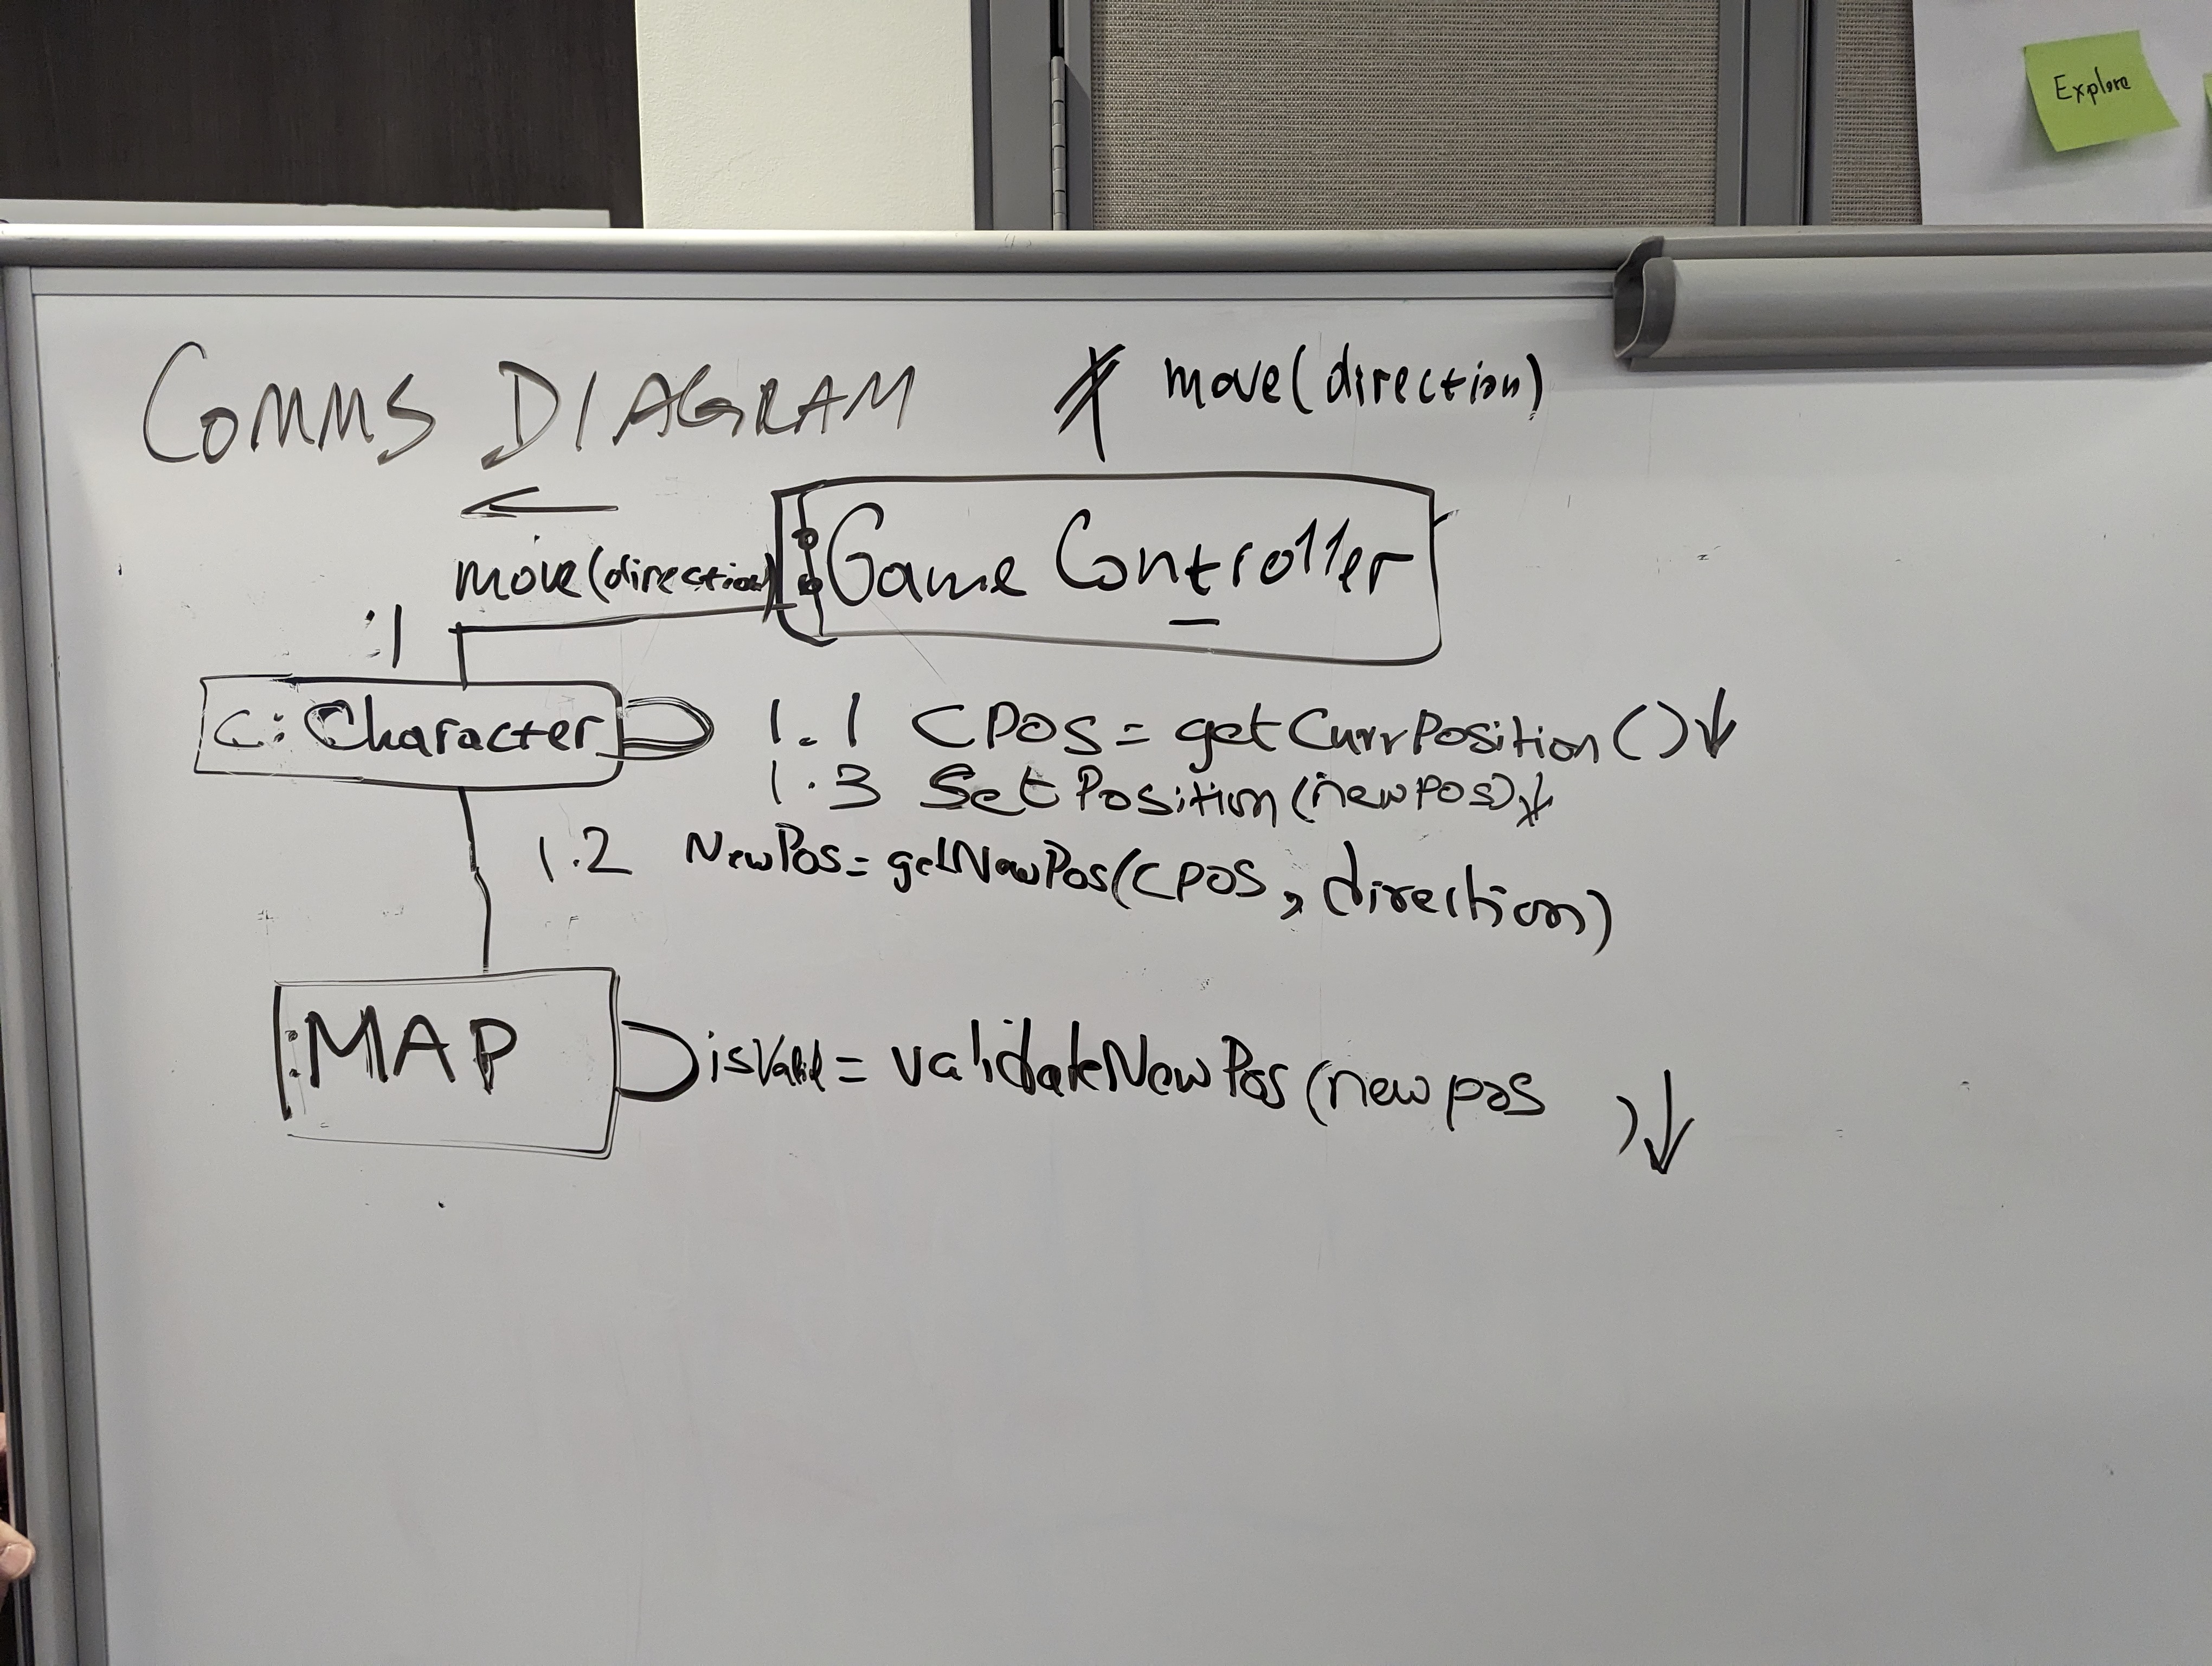 Explore
COMMS DIAGRAM
* move(direction)
move(direction)
:Game Controller
:1
C: Character
1.1 CPOS = getCurrPosition()↓
1.3 SetPosition(newpos)↓
1.2 NewPos= getNewPos(CPOS, direction)
:MAP
isValid = validateNewPos(newpos )↓